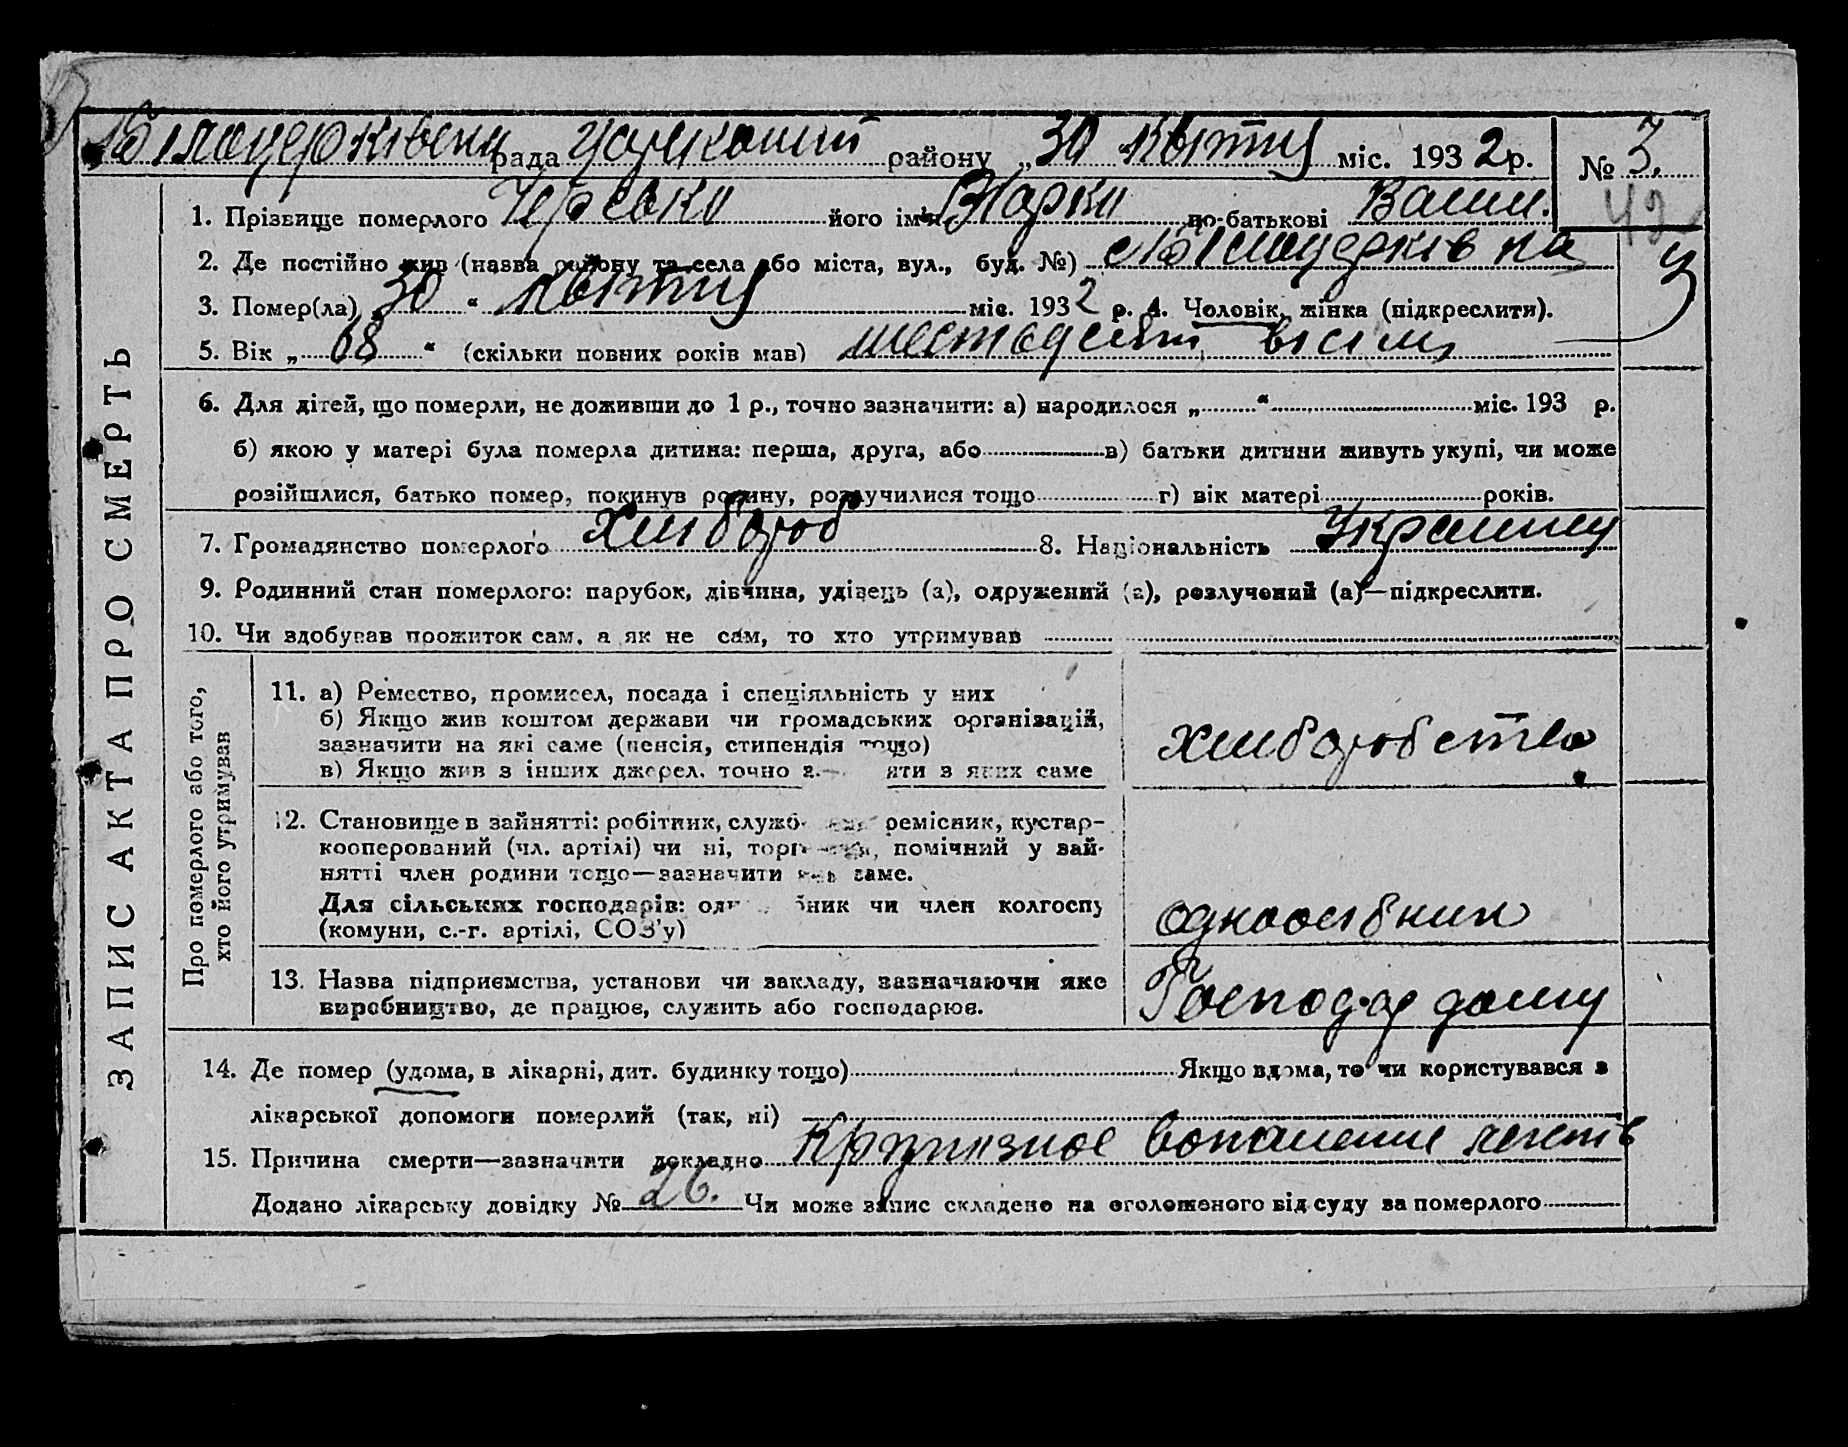 рада району „ 30 " квітня міс. 1932 р. № 3.
42
1. Прізвище померлого його ім'я Марко по-батькові Васил.
2. Де постійно жив (назва району та села або міста, вул., буд. №) Білоцерківка
3. Помер(ла) 30 " квітня міс. 1932 р. 4. Чоловік, жінка (підкреслити).
5. Вік „ 68 " (скільки повних років мав) шестьдесят вісім
6. Для дітей, що померли, не доживши до 1 р., точно зазначити: а) народилося „ " міс. 193 р.
б) якою у матері була померла дитина: перша, друга, або в) батьки дитини живуть укупі, чи може
розійшлися, батько помер, покинув родину, розлучилися тощо г) вік матері років.
7. Громадянство померлого хлібороб 8. Національність
9. Родинний стан померлого: парубок, дівчина, удівець (а), одружений (а), розлучений (а)—підкреслити.
10. Чи здобував прожиток сам, а як не сам, то хто утримував
ЗАПИС АКТА ПРО СМЕРТЬ
Про померлого або того,
хто його утримував
11. а) Ремество, промисел, посада і спеціяльність у них
б) Якщо жив коштом держави чи громадських організацій,
зазначити на які саме (пенсія, стипендія тощо)
в) Якщо жив з інших джерел, точно з яких саме
хлiборобство
12. Становище в зайнятті: робітник, служб ремісник, кустар-
кооперований (чл. артілі) чи ні, помічний у зай-
нятті член родини тощо—зазначити саме.
Для сільських господарів: одн бник чи член колгоспу
(комуни, с.-г. артілі, СОЗ'у)
одноосібник
13. Назва підприємства, установи чи закладу, зазначаючи яке
виробництво, де працює, служить або господарює.
Господар дому
14. Де помер (удома, в лікарні, дит. будинку тощо) Якщо вдома, то чи користувався з
лікарської допомоги померлий (так, ні)
15. Причина смерти—зазначити докладно Крупозное воспаление легких
Додано лікарську довідку № 26. Чи може запис складено на оголошеного від суду за померлого